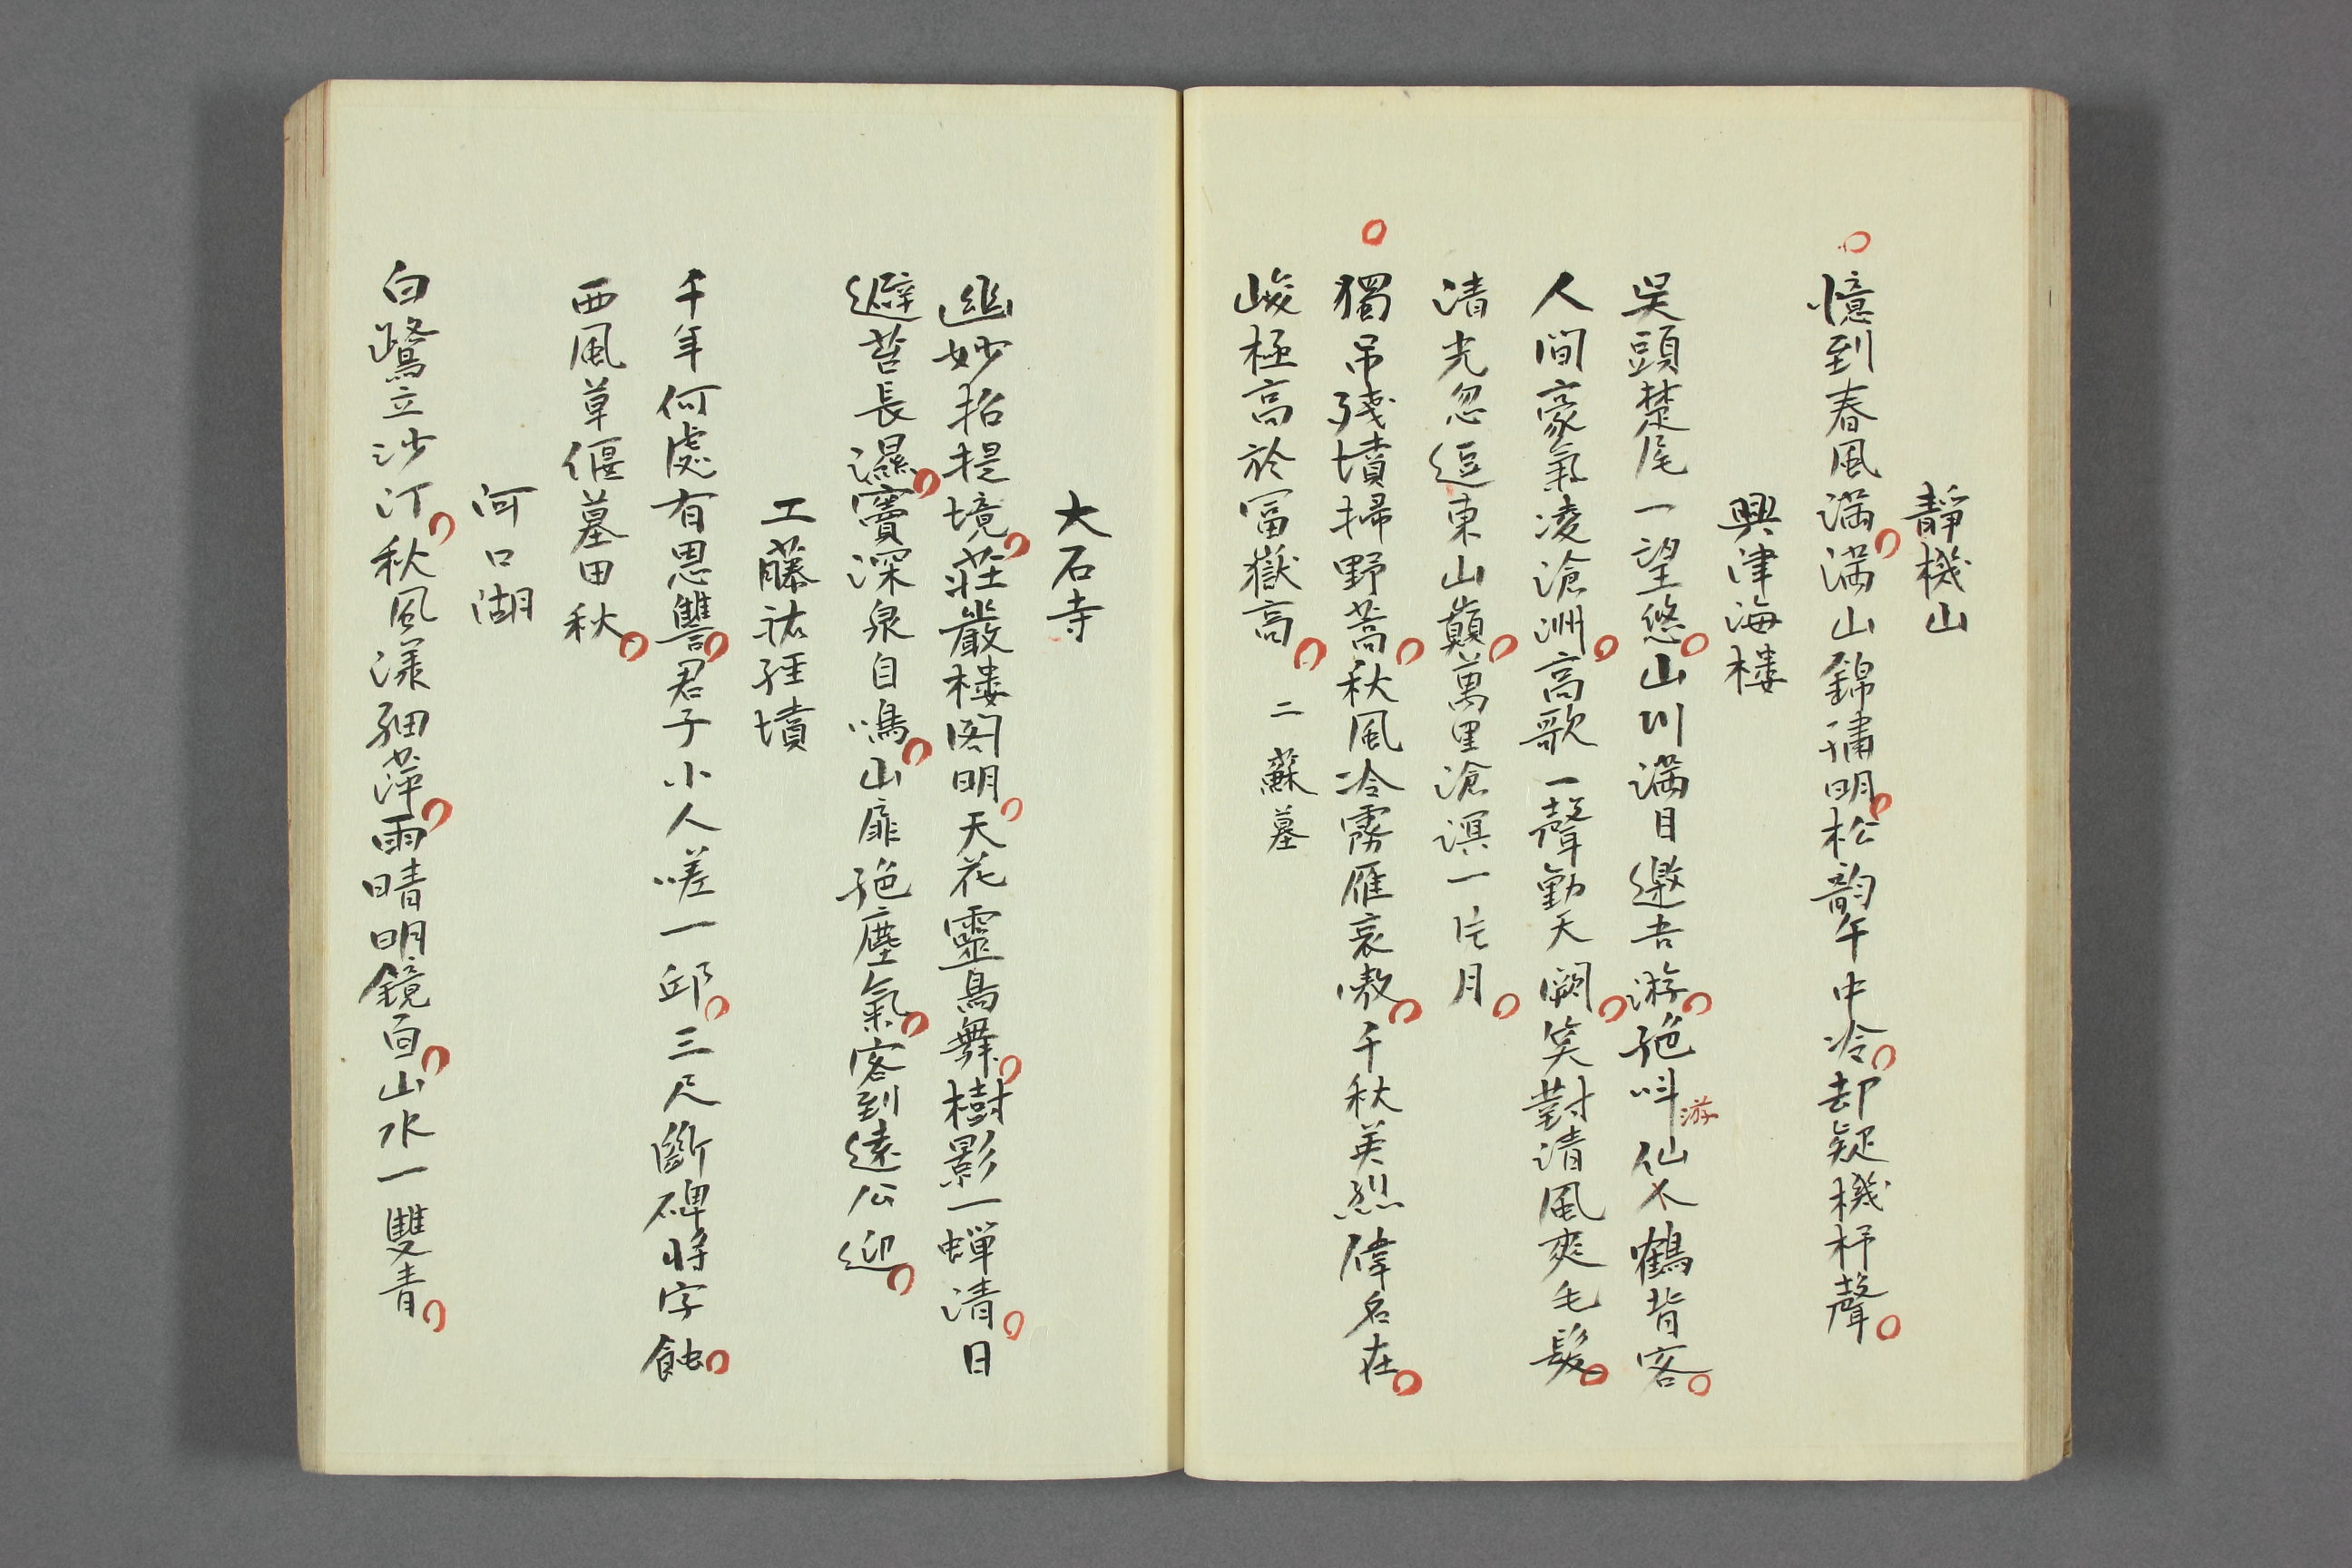 靜機山
憶到春風満満山錦繡明松韵午中冷却疑機杼聲
興津海樓
吳頭楚尾一望悠山川満目邀吾游絶叫仙人鶴背客
游
人間豪氣凌滄洲高歌一聲動天闕笑對清風爽毛髮
清光忽逗東山巔萬里滄溟一片月
獨吊殘墳掃野蒿秋風冷霧雁哀嗷千秋英烈偉名在
峻極高於冨嶽高　二蘇墓
大石寺
幽妙招提境莊嚴樓閣明天花靈鳥舞樹影一蟬清日
避苔長濕竇深泉自鳴山扉絶塵氣客到遠公迎
工藤祐経墳
千年何處有恩讐君子小人嗟一邱三尺斷碑将字蝕
西風草偃墓田秋
河口湖
白鷺立沙汀秋風漾細萍雨晴明鏡面山水一雙青